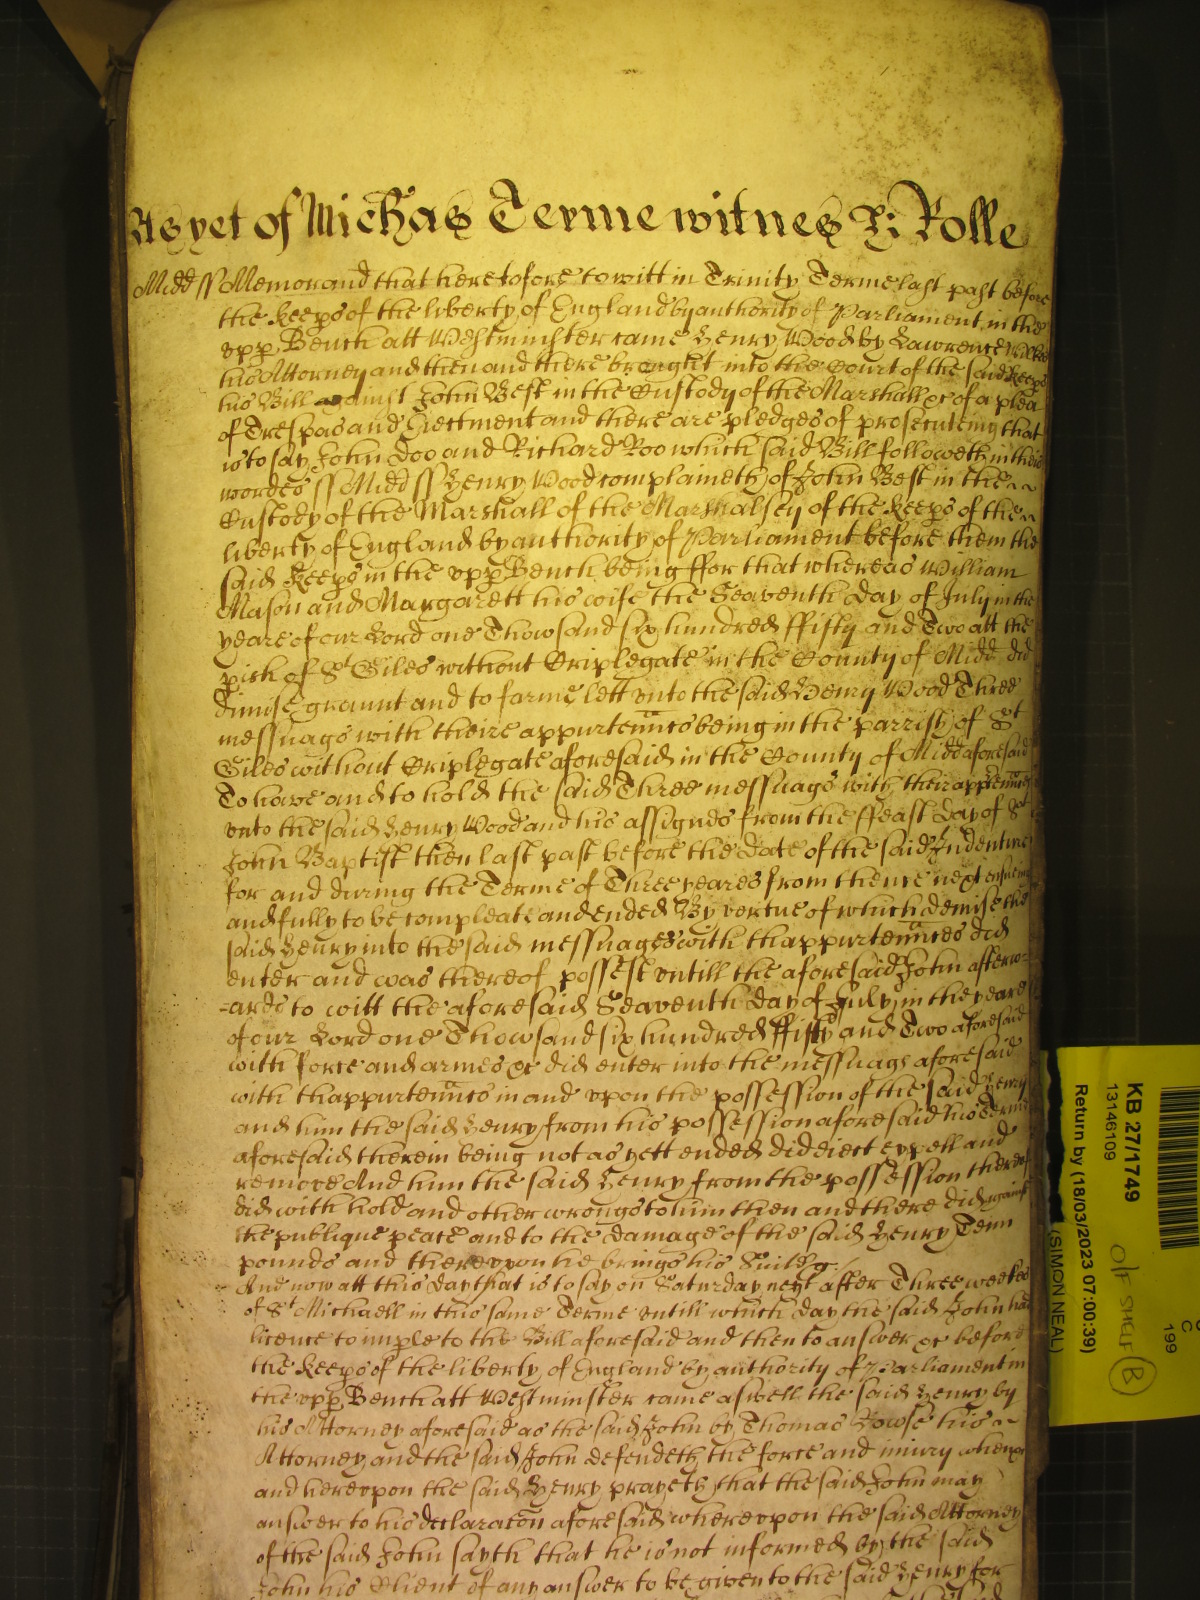 As yet of Michas Terme witnes H: Rolle
Midd ss Memorand that heretofore to witt in Trinity Terme last past before
the keeps of the liberty of England by authority of Parliament in the
upp Bench att Westminster came Henry Wood by Lawrence
his Attorney and then and there brought into the Court of the said keeps
his Bill against John Best in the Custody of the Marshall &c of a plea
of Trespas and Eiectment and there are pledges of prosecuteing that
is to say John Doo and Richard Roo which said Bill followeth in these
wordes ss Midd ss Henry Wood complaineth of John Best in the
Custody of the Marshall of the Marshalsey of the keeps of the
liberty of England by authority of Parliament before them the
said keeps in the upp Bench being ffor that whereas William
Mason and Margarett his wife the Seaventh day of July in the
yeare of our Lord one Thowsand six hundred ffifty and Two att the
pish of St Giles without Criplegate in the County of Midd did
dimise graunt and to farme lett unto the said Henry Wood Three
messuags with theire appurtenncs being in the parrish of St
Giles without Criplegate aforesaid in the County of Midd aforesaid
To have and to hold the said Three messuags with their apptennces
unto the said Henry Wood and his assignes from the ffeast day of St
John Baptist then last past before the date of the said Indenture
for and during the Terme of Three yeares from thence next ensuing
and fully to be compleate and ended By vertue of which demise the
said Henry into the said messuages with thappurtennces did
enter and was thereof possest untill the aforesaid John afterw-
-ards to witt the aforesaid Seaventh day of July in the yeare
of our Lord one Thowsand six hundred ffifty and Two aforesaid
with force and armes &c did enter into the messuags aforesaid
with thappurtenncs in and upon the possession of the said Henry
and him the said Henry from his possession aforesaid his terme
aforesaid therein being not as yett ended did eiect expell and
remove And him the said Henry from the possession thereof
did with hold and other wrongs to him then and there did against
the publique peace and to the damage of the said Henry Tenn
pounds and thereupon he brings his Suite &c
And now att this day that is to say on Saturday next after Three weekes
of St Michaell in this same Terme untill which day the said John had
licence to imple to the Bill aforesaid and then to answer &c before
the keeps of the liberty of England by authority of Parliament in
the upp Bench att Westminster came aswell the said Henry by
his Attorney aforesaid as the said John by Thomas Lowse his
Attorney and the said John defendeth the force and iniury when &c
and hereupon the said Henry prayeth that the said John may
answer to his declaracon aforesaid whereupon the said Attorney
of the said John sayth that he is not informed by the said
John his Client of any answer to be given to the said Henry for
KB 27/1749
13146109
Return by (18/03/2023 07:00:39)
(SIMON NEAL)
O/F SHELF
B
C
199